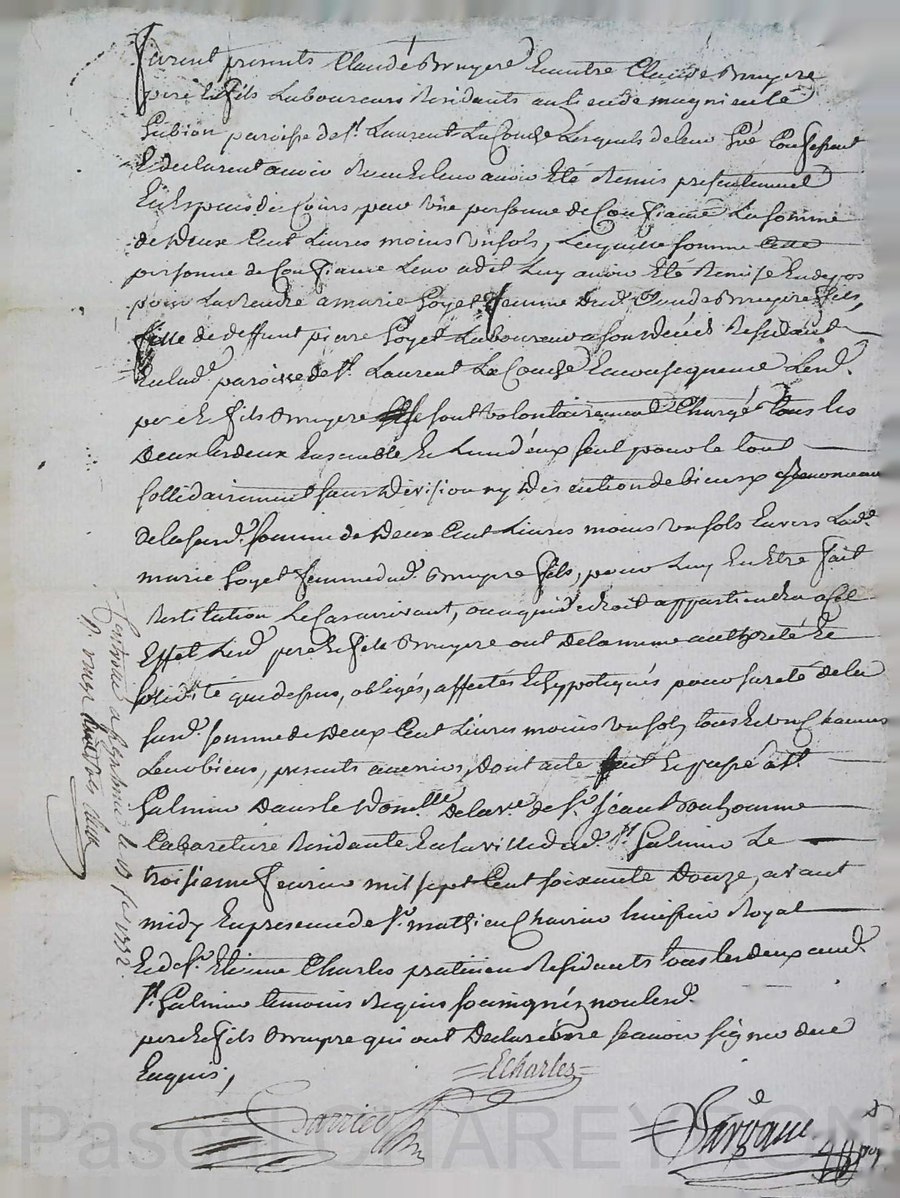 furent presents Claude Bruyere Et autre Claude Bruyere
pere et fils Laboureurs Residants au lieu de magnieu le
Gabion paroisse de st. Laurent La Conche Lesquels de leur Gré Confessent
Et declarent avoir Receu Et leur avoir Eté Remis presentement
En Espece de Cours, par Une personne de Confiance La somme
de Deux Cent Livres moins un sols, Laquelle somme cette
personne de Confiance Leur a dit Luy avoir Eté Remise En depos
pour La rendre a marie Goyet femme dud. Claude Bruyere fils,
fille de deffunt pierre Goyet Laboureur a son déces Residant
En lad. paroisse de st. Laurent La Conche En consequence Lesd.
pere et fils Bruyere se sont volontairement Chargés tous les
Deux Les deux Ensemble Et L'un d'eux seul pour le tout
sollidairement sans Division ny Discution de biens y Renonceant
de la susd. somme de Deux Cent Livres moins un sols Envers Lad.
marie Goyet femme dud. Bruyere fils, pour Luy En Etre fait
Restitution Le Cas arrivant, ou a qui de droit appartiendra a Cet
Effet Lesd. pere Et fils Bruyere ont de la meme authorité Et
solidité que dessus, obligés, affectés Et hypotequés pour sureté de la
susd. somme de Deux Cent Livres moins un sols tous Et un Chacuns
Leurs biens, presents a venirs, Dont acte fait Et passé a st.
Galmier Dans le Domille de la ve. de sr. Jean Bonhomme
Cabaretiere Residante En la ville dud. st. Galmier Le
troisieme fevrier mil sept Cent soixante Douze, avant
midy En presence de sr. mathieu Charrier huissier Royal
Et de sr. Etienne Charles praticien Residants tous les deux aud.
st. Galmier temoins Requis soussignéz non lesd.
pere Et fils Bruyere qui ont Declaré ne scavoir signer de ce
Enquis,
ECharles
Pascal CHAREYRON